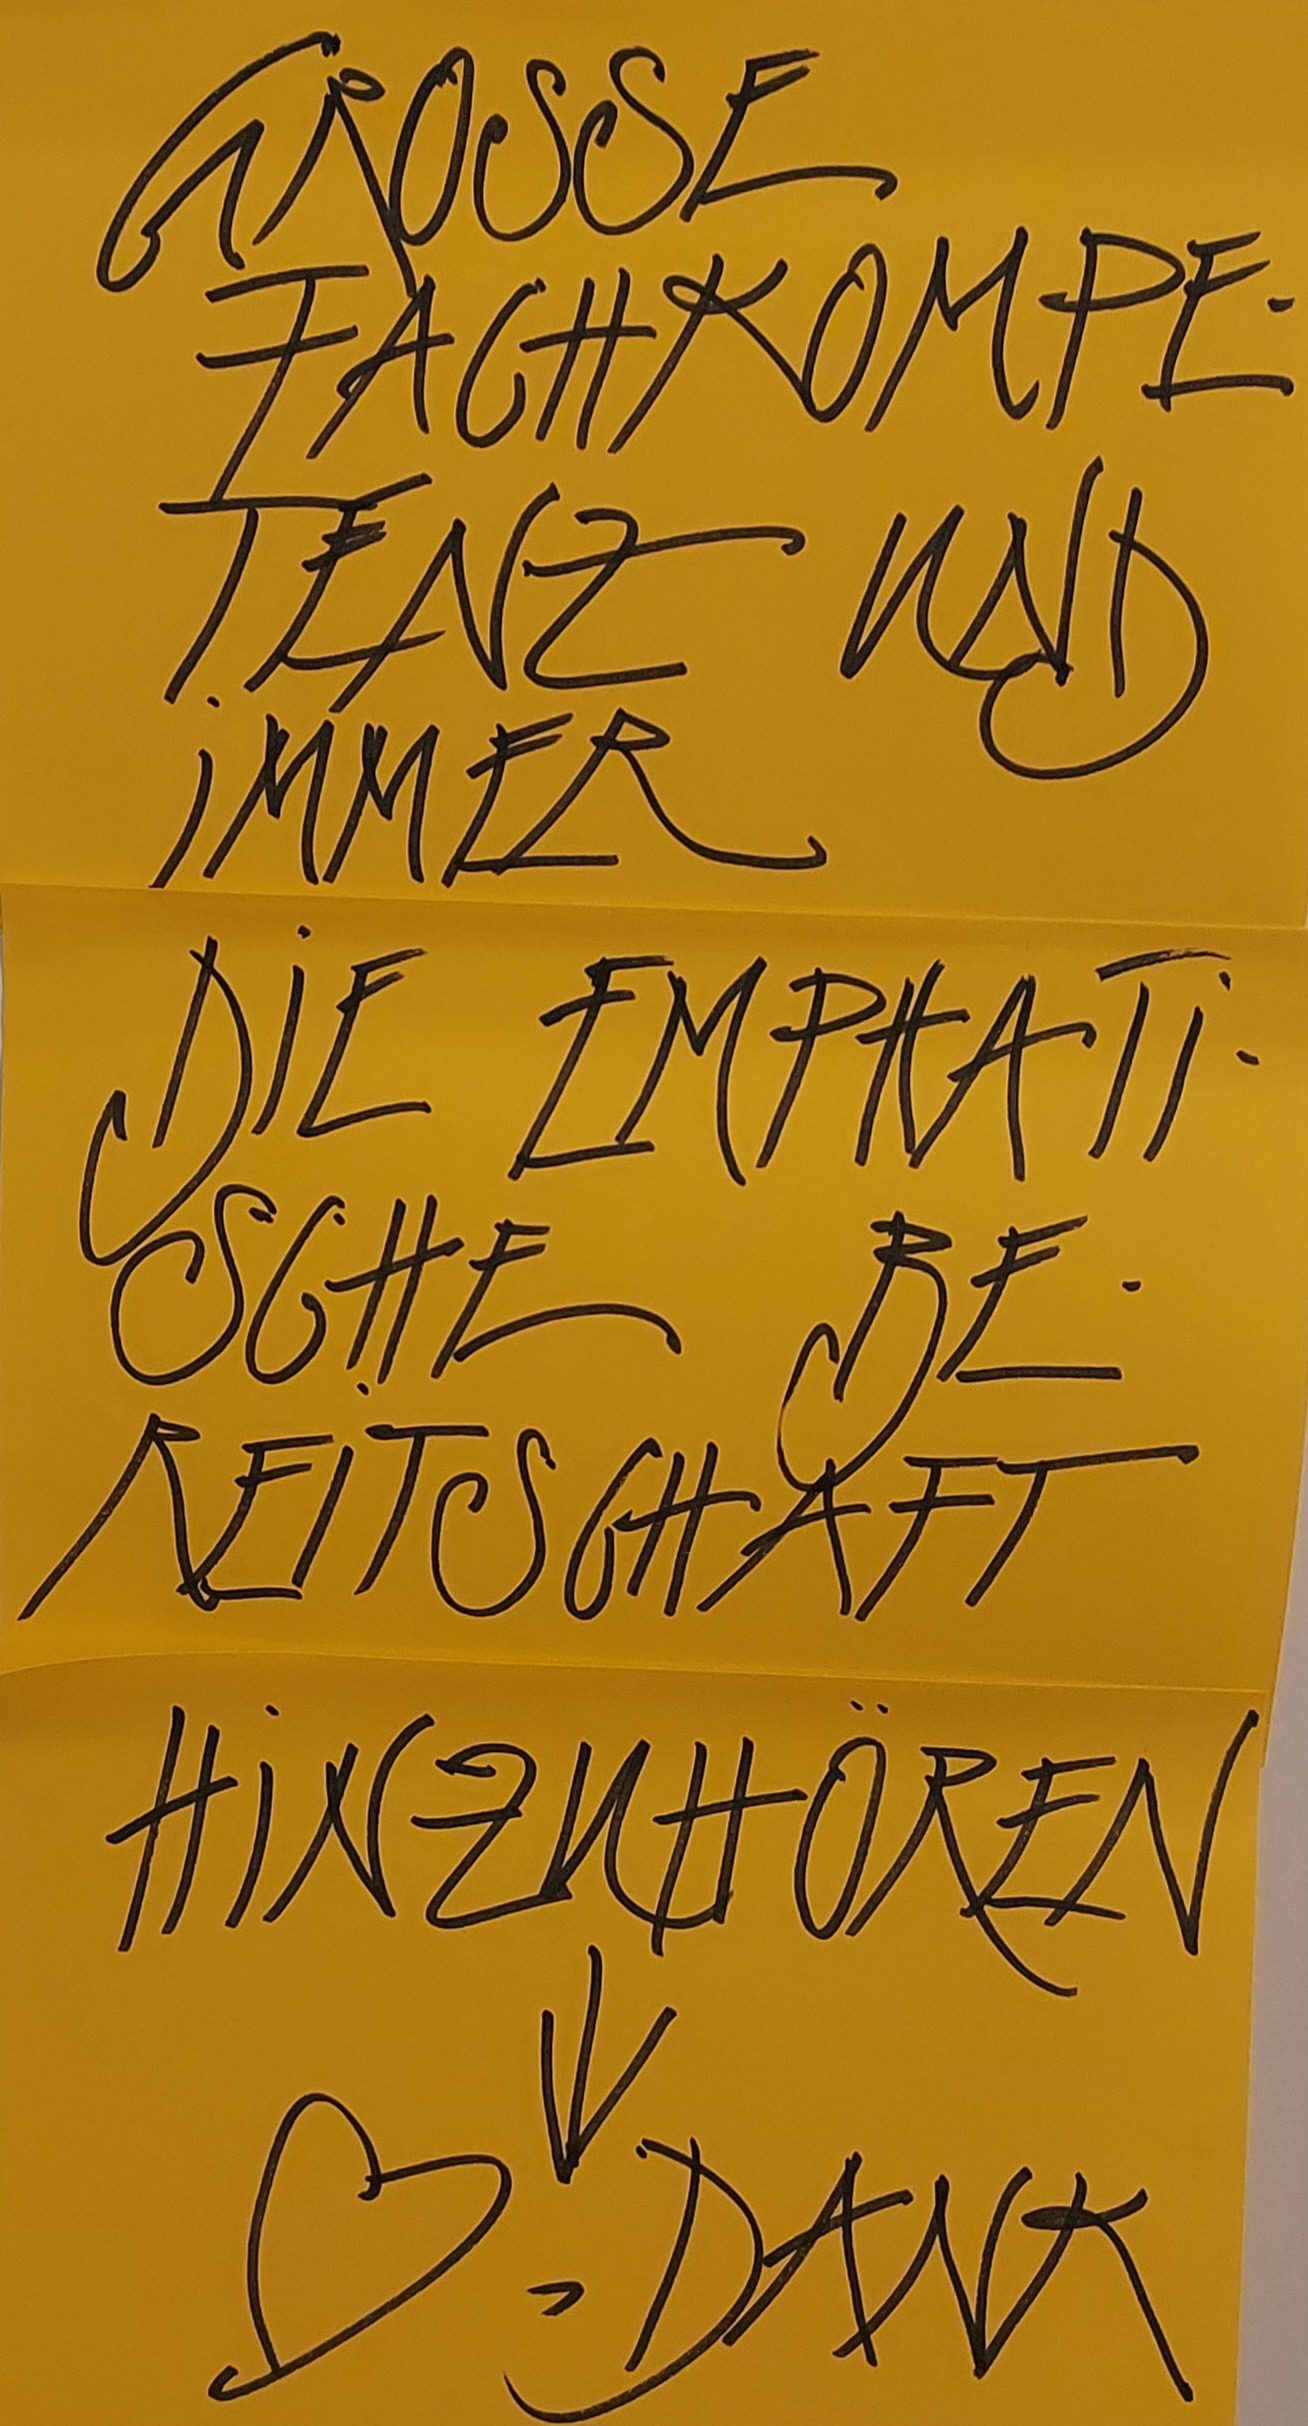 GROSSE
FACHKOMPE-
TENZ UND
iMMER
DiE EMPHATi-
SCHE BE-
REITSCHAFT
HiNZUHÖREN
- DANK